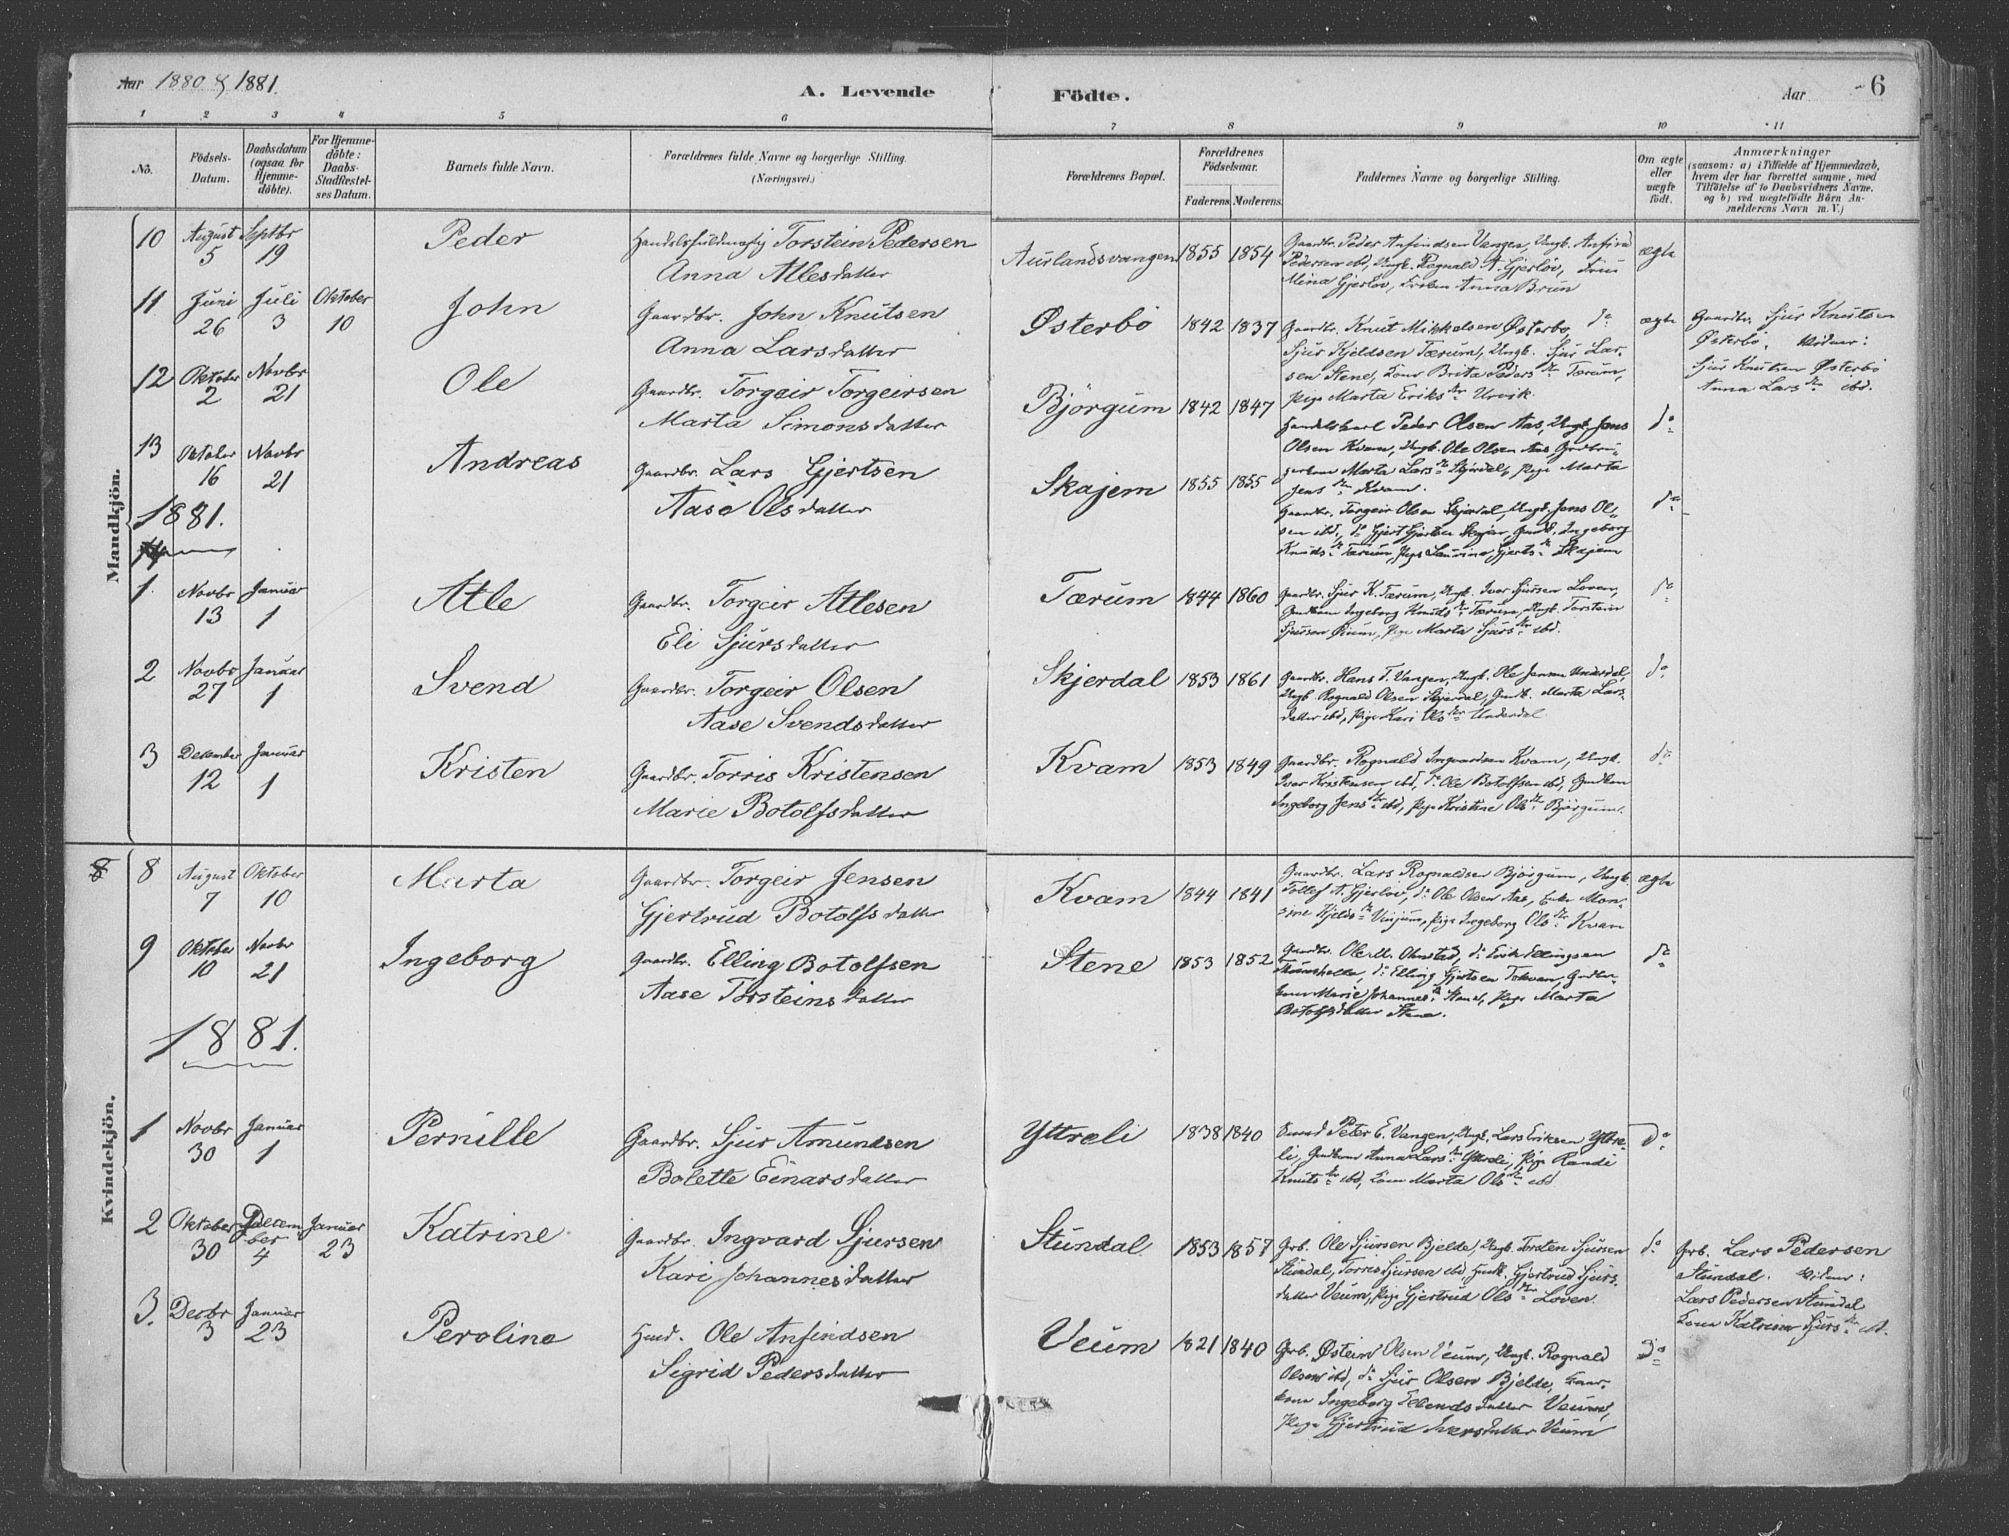 Aar 1880 & 1881.
A. Levende
Födte.
Aar
6
1 2 3 4 5 6 7 8 9 10 11
No.
Födsels-Datum.
Daabsdatum (ogsaa for Hjemmedöbte).
For Hjemmedöbte: Daabs-Stadfestelses Datum.
Barnets fulde Navn.
Forældrenes fulde Navne og borgerlige Stilling.
(Næringsvei.)
Forældrenes Bopæl.
Forældrenes Födselsaar.
Faderens Moderens
Faddernes Navne og borgerlige Stilling.
Om ægte eller uægte födt.
Anmærkninger
(saasom: a) i Tilfælde af Hjemmedaab, hvem der har forrettet samme, med Tilföielse af to Daabsvidners Navne, og b) ved uægtefödte Börn Anmelderens Navn m. V.)
Mandkjön.
10 August 5 Septbr 19 Peder
Torstein Pedersen
Anna Atlesdatter
Aurlandsvangen 1855 1854
Gaardbr. Peder Anfindsen Vangen, Ungk. Anfind
Pedersen ibd, Ungk. Rognald A. Gjerløv, Frue
Mina Gjerløv, Anna Brun
ægte
11 Juni 26 Juli 3 Oktober 10 John
Gaardbr. John Knutsen
Anna Larsdatter
Østerbø 1842 1837
Gaardbr. Knut Mikkelsen Østerbø, do
Sjur Kjeldsen Tærum, Ungk. Sjur Lar-
sen Stene, Kone Brita Pedersdtr Tærum,
Pige Marta Eriksdtr Urvik.
ægte
Gaardbr. Sjur Knutsen
Østerbö. Vidner:
Sjur Knutsen Østerbö
Anna Larsdtr ibd.
12 Oktober 2 Novbr 21 Ole
Gaardbr. Torgeir Torgeirsen
Marta Simonsdatter
Bjørgum 1842 1847
Handelskarl Peder Olsen Aas, Ungk. Jens
Olsen Kvam, Ungk. Ole Olsen Aas,
Marta Larsdtr Skjerdal, Pige Marta
Jensdtr Kvam.
do
13 Oktober 16 Novbr 21 Andreas
Gaardbr. Lars Gjertsen
Aase Olsdatter
Skajem 1855 1855
Gaardbr. Torgeir Olsen Skjerdal, Ungk. Jens Ol-
sen ibd, do Gjert Gjertsen Skajem, Ingeborg
Knudsdtr Tærum, Pige Laurina Gjertsdtr Skajem
do
1881.
1 Novbr 13 Januar 1 Atle
Gaardbr. Torgeir Atlesen
Eli Sjursdatter
Tærum 1844 1860
Gaardbr. Sjur K. Tærum, Ungk. Ivar Sjursen Loven,
Ingeborg Knudsdtr Tærum, Ungk. Torstein
Sjursen, Pige Marta Sjursdtr ibd.
do
2 Novbr 27 Januar 1 Svend
Gaardbr. Torgeir Olsen
Aase Svendsdatter
Skjerdal 1853 1861
Gaardbr. Hans T. Vangen, Ungk. Ole Jensen Underdal,
Ungk. Rognald Olsen Skjerdal, Marta Lars-
datter ibd, Pige Kari Olsdtr Underdal
do
3 December 12 Januar 1 Kristen
Gaardbr. Torris Kristensen
Marie Botolfsdatter
Kvam 1853 1849
Gaardbr. Rognald Ingvardsen Kvam, Ungk.
Ivar Kristensen ibd, do Ole Botolfsen ibd,
Ingeborg Jensdtr ibd, Pige Kristine Olsdtr Bjørgum.
do
Kvindekjön.
8 August 7 Oktober 10 Marta
Gaardbr. Torgeir Jensen
Gjertrud Botolfsdatter
Kvam 1844 1841
Gaardbr. Lars Rognaldsen Bjørgum, Ungk.
Tollef A. Gjerløv, do Ole Olsen Aas, Enke Mon-
sine Kjeldsdtr Vinjum, Pige Ingeborg Olsdtr Kvam
ægte
9 Oktober 10 Novbr 21 Ingeborg
Gaardbr. Elling Botolfsen
Aase Torsteinsdatter
Stene 1853 1852
Gaardbr. Ole M. Onstad, do Erik Ellingsen
do Elling Gjertsen Tokvam,
Marie Johannesdtr Stene, Pige Marta
Botolfsdatter Stene.
do
1881.
1 Novbr 30 Januar 1 Pernille
Gaardbr. Sjur Amundsen
Bolette Einarsdatter
Yttreli 1838 1840
Peter E. Vangen, Ungk. Lars Eriksen Yttre-
li, Anna Larsdtr Yttreli, Pige Randi
Knutsdtr ibd, Kone Marta Olsdtr ibd
do
2 Oktober 30 December 4 Januar 23 Katrine
Gaardbr. Ingvard Sjursen
Kari Johannesdatter
Stundal 1853 1857
Grb. Ole Sjursen Bjelde, Ungk. Torsten Sjursen
Stundal, Torris Sjursen ibd, Gjertrud Sjurs-
datter Veum, Pige Gjertrud Olsdtr Loven
do
Grb. Lars Pedersen
Stundal. Vidner:
Lars Pedersen Stundal
Kone Katrine Sjursdtr
3. Decbr 3 Januar 23 Peroline
Husmd. Ole Anfindsen
Sigrid Pedersdatter
Veum 1821 1840
Grb. Østein Olsen Veum, Ungk. Rognald
Olsen ibd, do Sjur Olsen Bjelde,
Ingeborg Ellendsdatter Veum,
Pige Gjertrud Iversdatter Veum
do